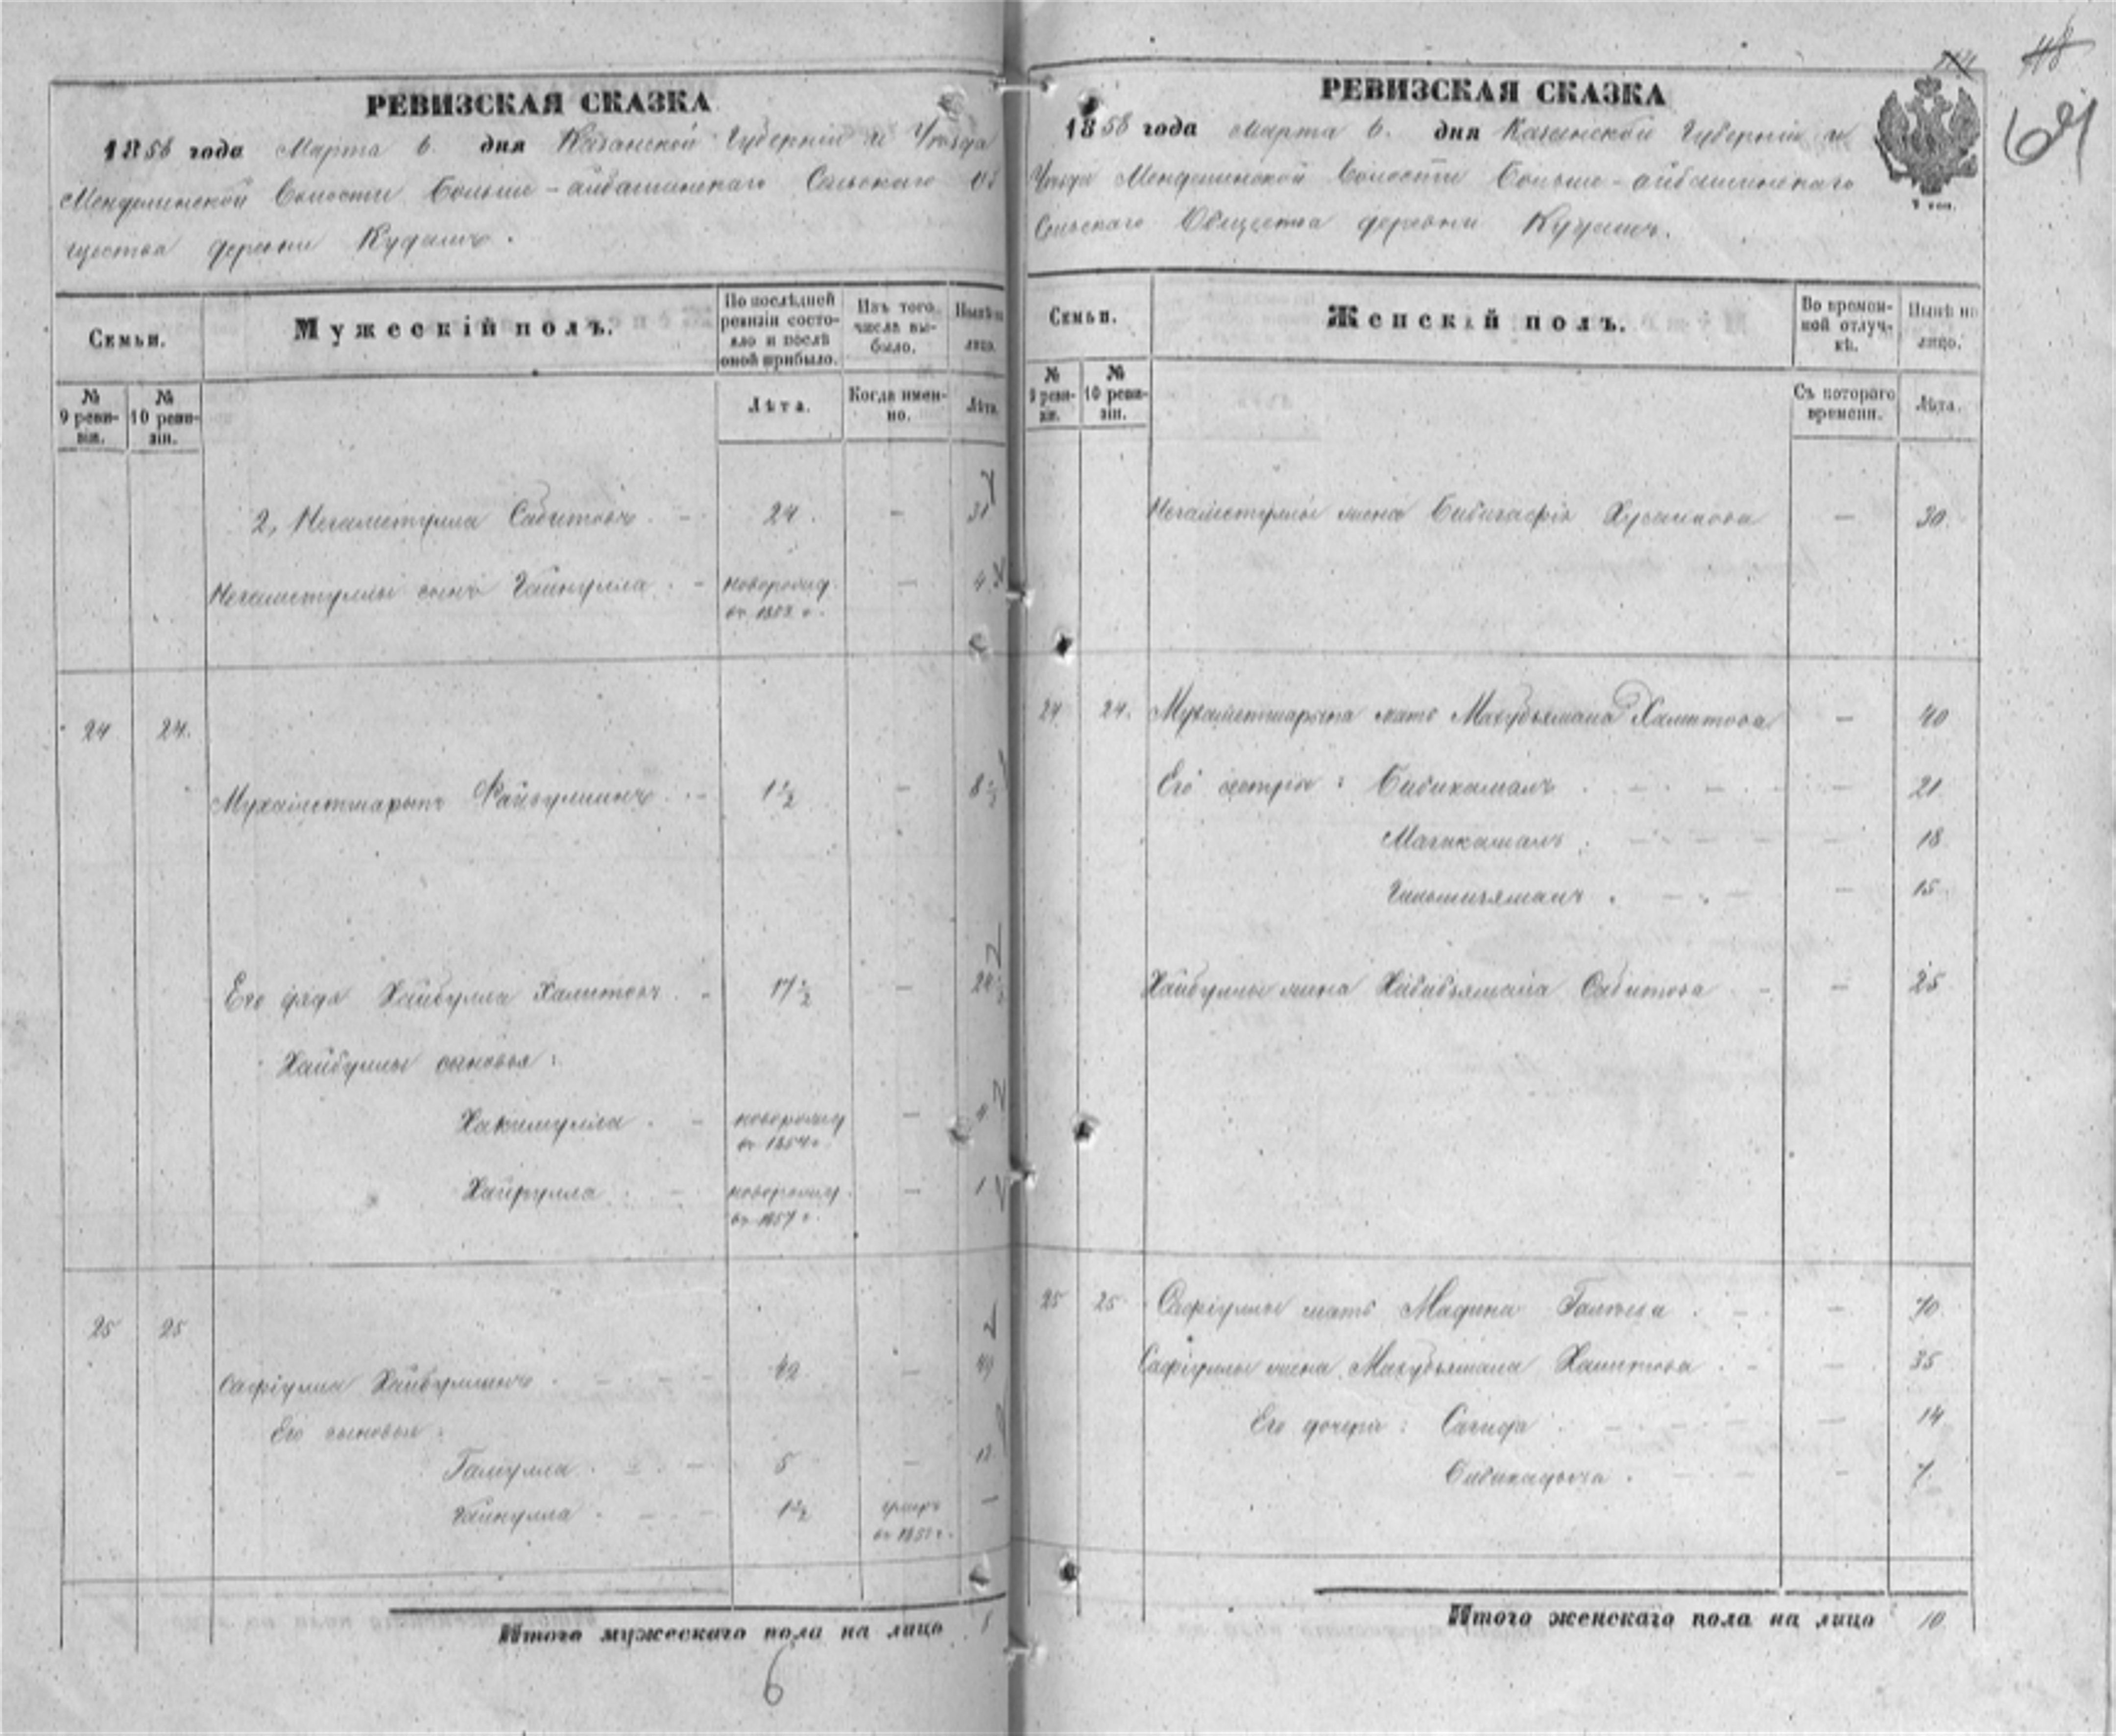 РЕВИЗСКАЯ СКАЗКА
1858 года Марта 6. дня Казанской Губерніи и Уѣзда
Менделинской Волости Больше-айбашинскаго Сельскаго Об
щества деревни Кудашъ.
Семьи.
Мужескій полъ.
По послѣдней ревизіи состояло и послѣ оной прибыло.
Изъ того числа выбыло.
Нынѣ на лицо.
№ 9 ревизіи.
№ 10 ревизіи.
Лѣта.
Когда именно.
Лѣта.
2, Негаметулла Сабитовъ - 24. - 31
Негаметуллы сынъ Гайнулла - новорожд. - 4
24 24.
Мухаметшарыпъ Файзуллинъ - 1½ - 8½
Его дядя Хайбулла Халитовъ - 17½ - 24½
Хайбуллы сыновья:
Хакимулла - новорожд - 4
въ 1854 г.
Хайрулла - новорожд. - 1
въ 1857 г.
25 25
Сафіулла Хайбуллинъ - 42 - 49
Его сыновья:
Галиулла - 5 - 12
Гайнулла - 1½ умеръ -
въ 1851 г.
Итого мужескаго пола на лицо 8
6
РЕВИЗСКАЯ СКАЗКА
118
64
1858 года Марта 6. дня Казанской Губерніи и
Уѣзда Менделинской Волости Больше-айбашинскаго
Сельскаго Общества деревни Кудашъ.
Семьи.
Женскій полъ.
Во временной отлучкѣ.
Нынѣ на лицо.
№ 9 ревизіи.
№ 10 ревизіи.
Съ котораго времени.
Лѣта.
Негаметуллы жена Хусаинова - 30.
24 24. Мухаметшарыпа мать Махубзямала Халитова - 40
Его сестры: Бибикамалъ - 21
Магикамалъ - 18
- 15
Хайбуллы жена Сабитова - 25
25 25 Сафіуллы мать Мадина - 70.
Сафіуллы жена Махубзямала Халитова - 35
Его дочери: Сагида - 14
- 7.
Итого женскаго пола на лицо 10